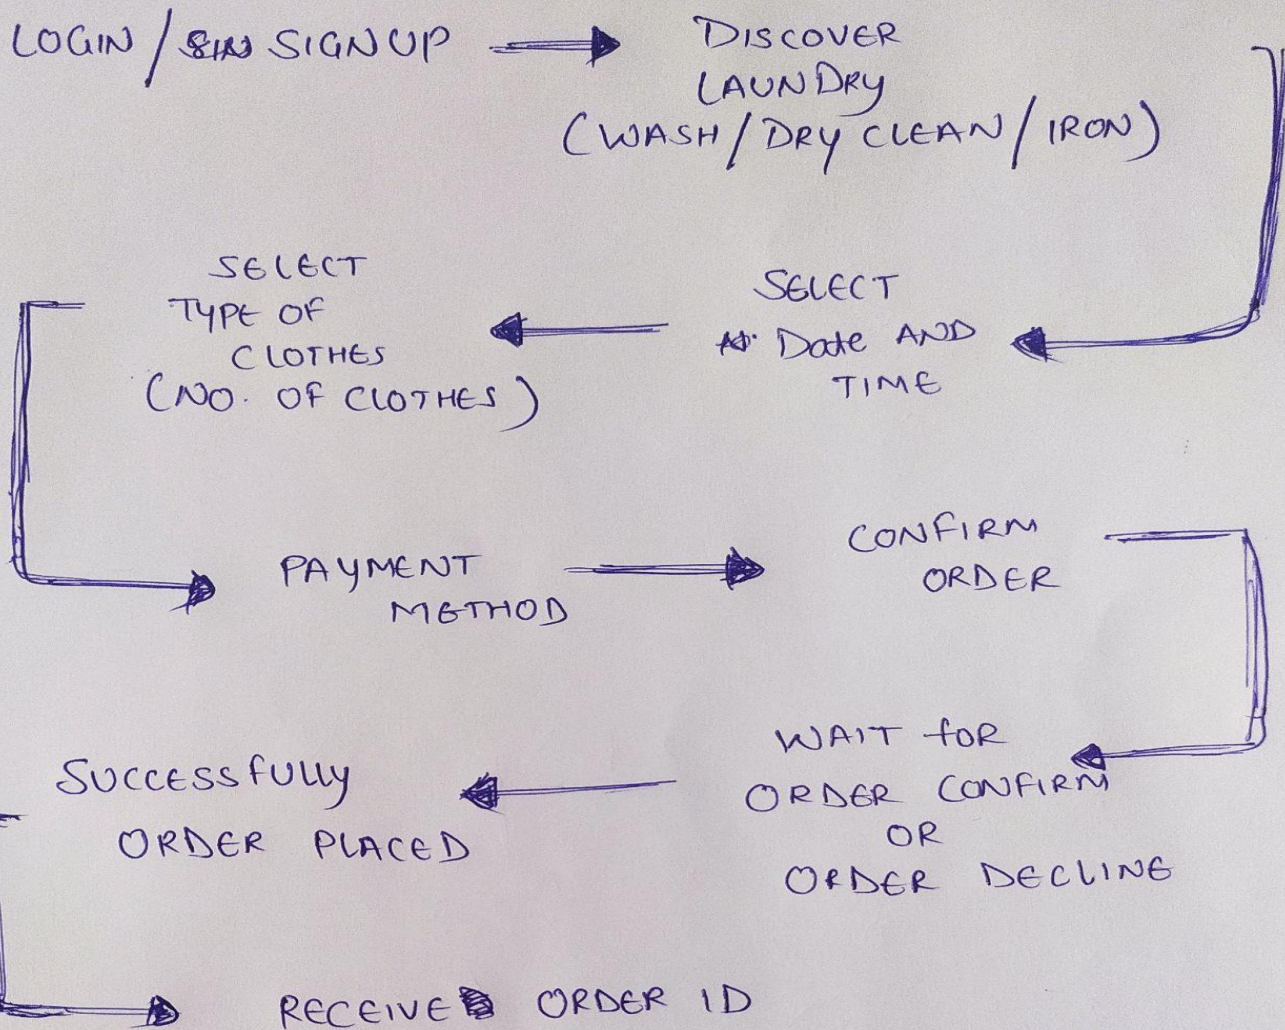 LOGIN / SIGNUP
DISCOVER
LAUNDRY
(WASH/DRY CLEAN/IRON)
SELECT
Date AND
TIME
SELECT
TYPE OF
CLOTHES
(NO. OF CLOTHES)
PAYMENT
METHOD
CONFIRM
ORDER
WAIT FOR
ORDER CONFIRM
OR
ORDER DECLINE
SUCCESSFULLY
ORDER PLACED
RECEIVE ORDER ID